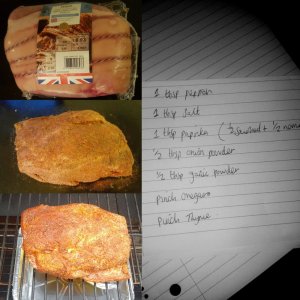 1 tbsp pepper
1 tbsp salt
1 tbsp paprika (1/2 smoked + 1/2 norm
1/2 tbsp onion powder
1/2 tbsp garlic powder
Pinch oregano
Pinch Thyme